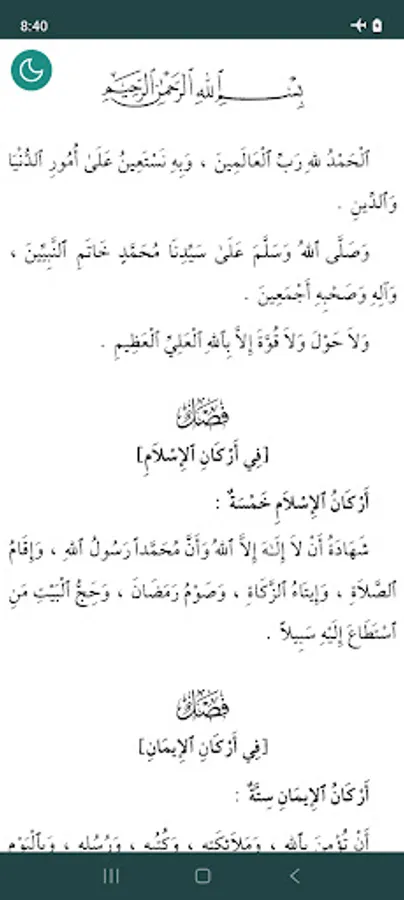 8:40
بِسْمِ ٱللهِ ٱلرَّحْمٰنِ ٱلرَّحِيمِ
ٱلْحَمْدُ للهِ رَبِّ ٱلْعَالَمِينَ ، وَبِهِ نَسْتَعِينُ عَلَىٰ أُمُورِ ٱلدُّنْيَا
وَٱلدِّينِ .
وَصَلَّى ٱللهُ وَسَلَّمَ عَلَىٰ سَيِّدِنَا مُحَمَّدٍ خَاتَمِ ٱلنَّبِيِّينَ ،
وَآلِهِ وَصَحْبِهِ أَجْمَعِينَ .
وَلاَ حَوْلَ وَلاَ قُوَّةَ إِلاَّ بِٱللهِ ٱلْعَلِيِّ ٱلْعَظِيمِ .
فَصْلٌ
[فِي أَرْكَانِ ٱلإِسْلاَمِ]
أَرْكَانُ ٱلإِسْلاَمِ خَمْسَةٌ :
شَهَادَةُ أَنْ لاَ إِلَـٰهَ إِلاَّ ٱللهُ وَأَنَّ مُحَمَّداً رَسُولُ ٱللهِ ، وَإِقَامُ
ٱلصَّلاَةِ ، وَإِيتَاءُ ٱلزَّكَاةِ ، وَصَوْمُ رَمَضَانَ ، وَحَجُّ ٱلْبَيْتِ مَنِ
ٱسْتَطَاعَ إِلَيْهِ سَبِيلاً .
فَصْلٌ
[فِي أَرْكَانِ ٱلإِيمَانِ]
أَرْكَانُ ٱلإِيمَانِ سِتَّةٌ :
أَنْ تُؤْمِنَ بِٱللهِ ، وَمَلاَئِكَتِهِ ، وَكُتُبِهِ ، وَرُسُلِهِ ، وَبِٱلْيَوْمِ